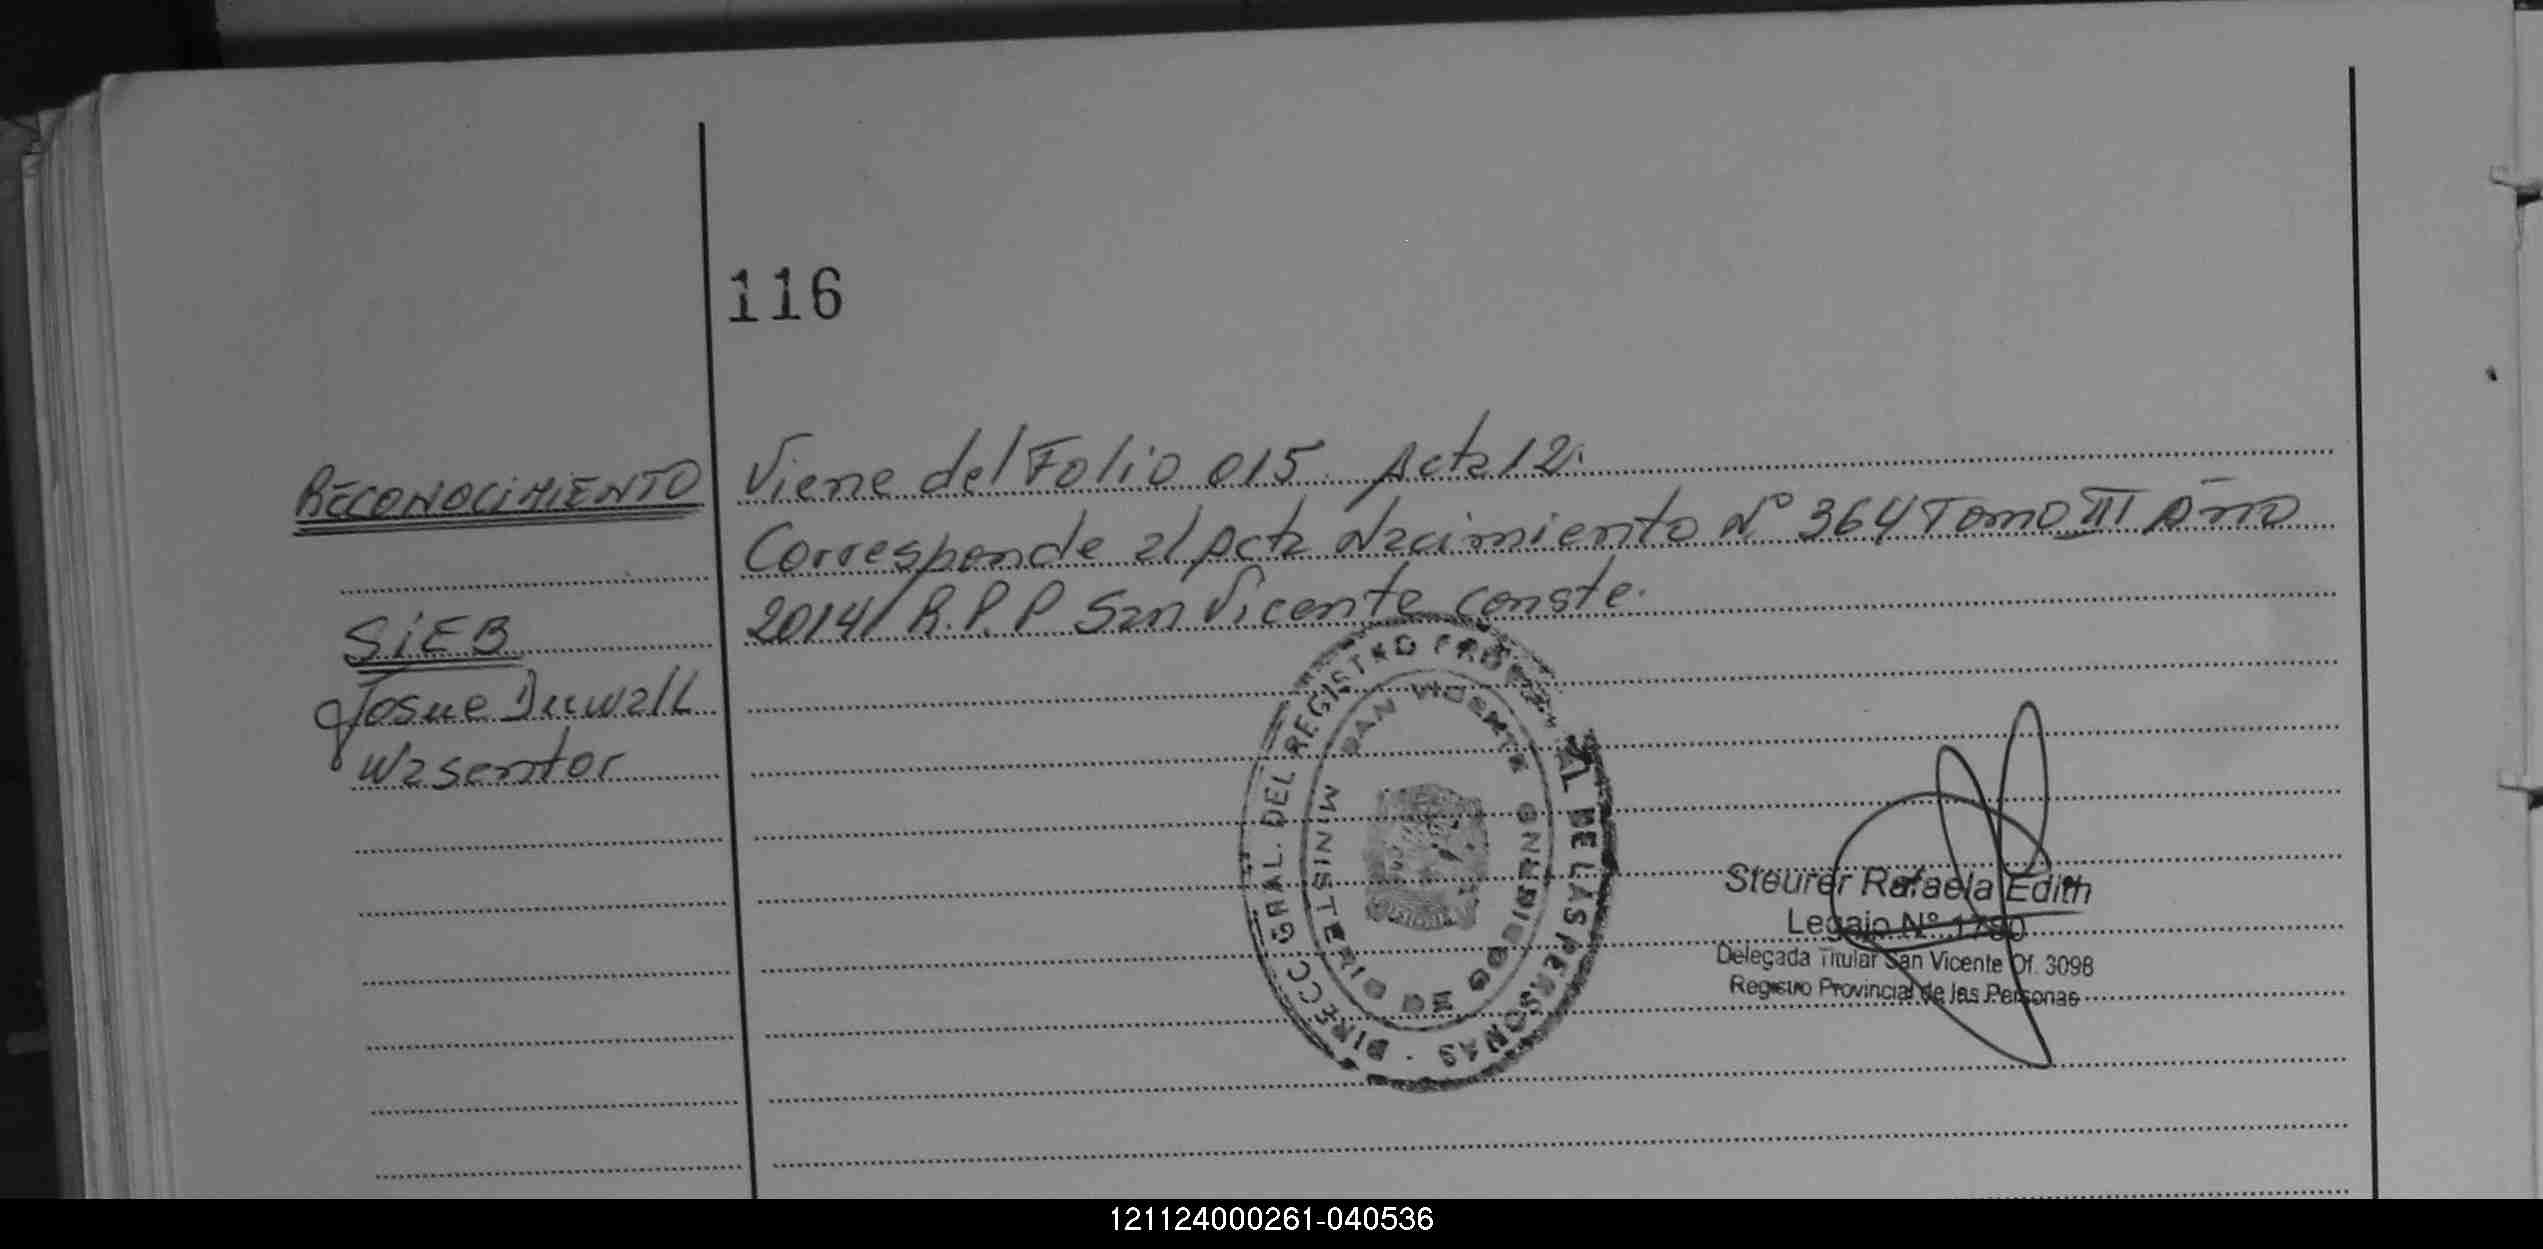 116
RECONOCIMIENTO
SIEB
Josue Duwall
Wasentor
Viene del Folio 015. Acta 12.
Corresponde al Acta Nacimiento Nº 364 Tomo III Año
2014/ R.P.P San Vicente conste.
DIRECC. GRAL. DEL REGISTRO PROVINCIAL DE LAS PERSONAS
MINISTERIO DE GOBIERNO SAN VICENTE
Steurer Rafaela Edith
Legajo Nº 1790
Delegada Titular San Vicente Of. 3098
Registro Provincial de las Personas
121124000261-040536